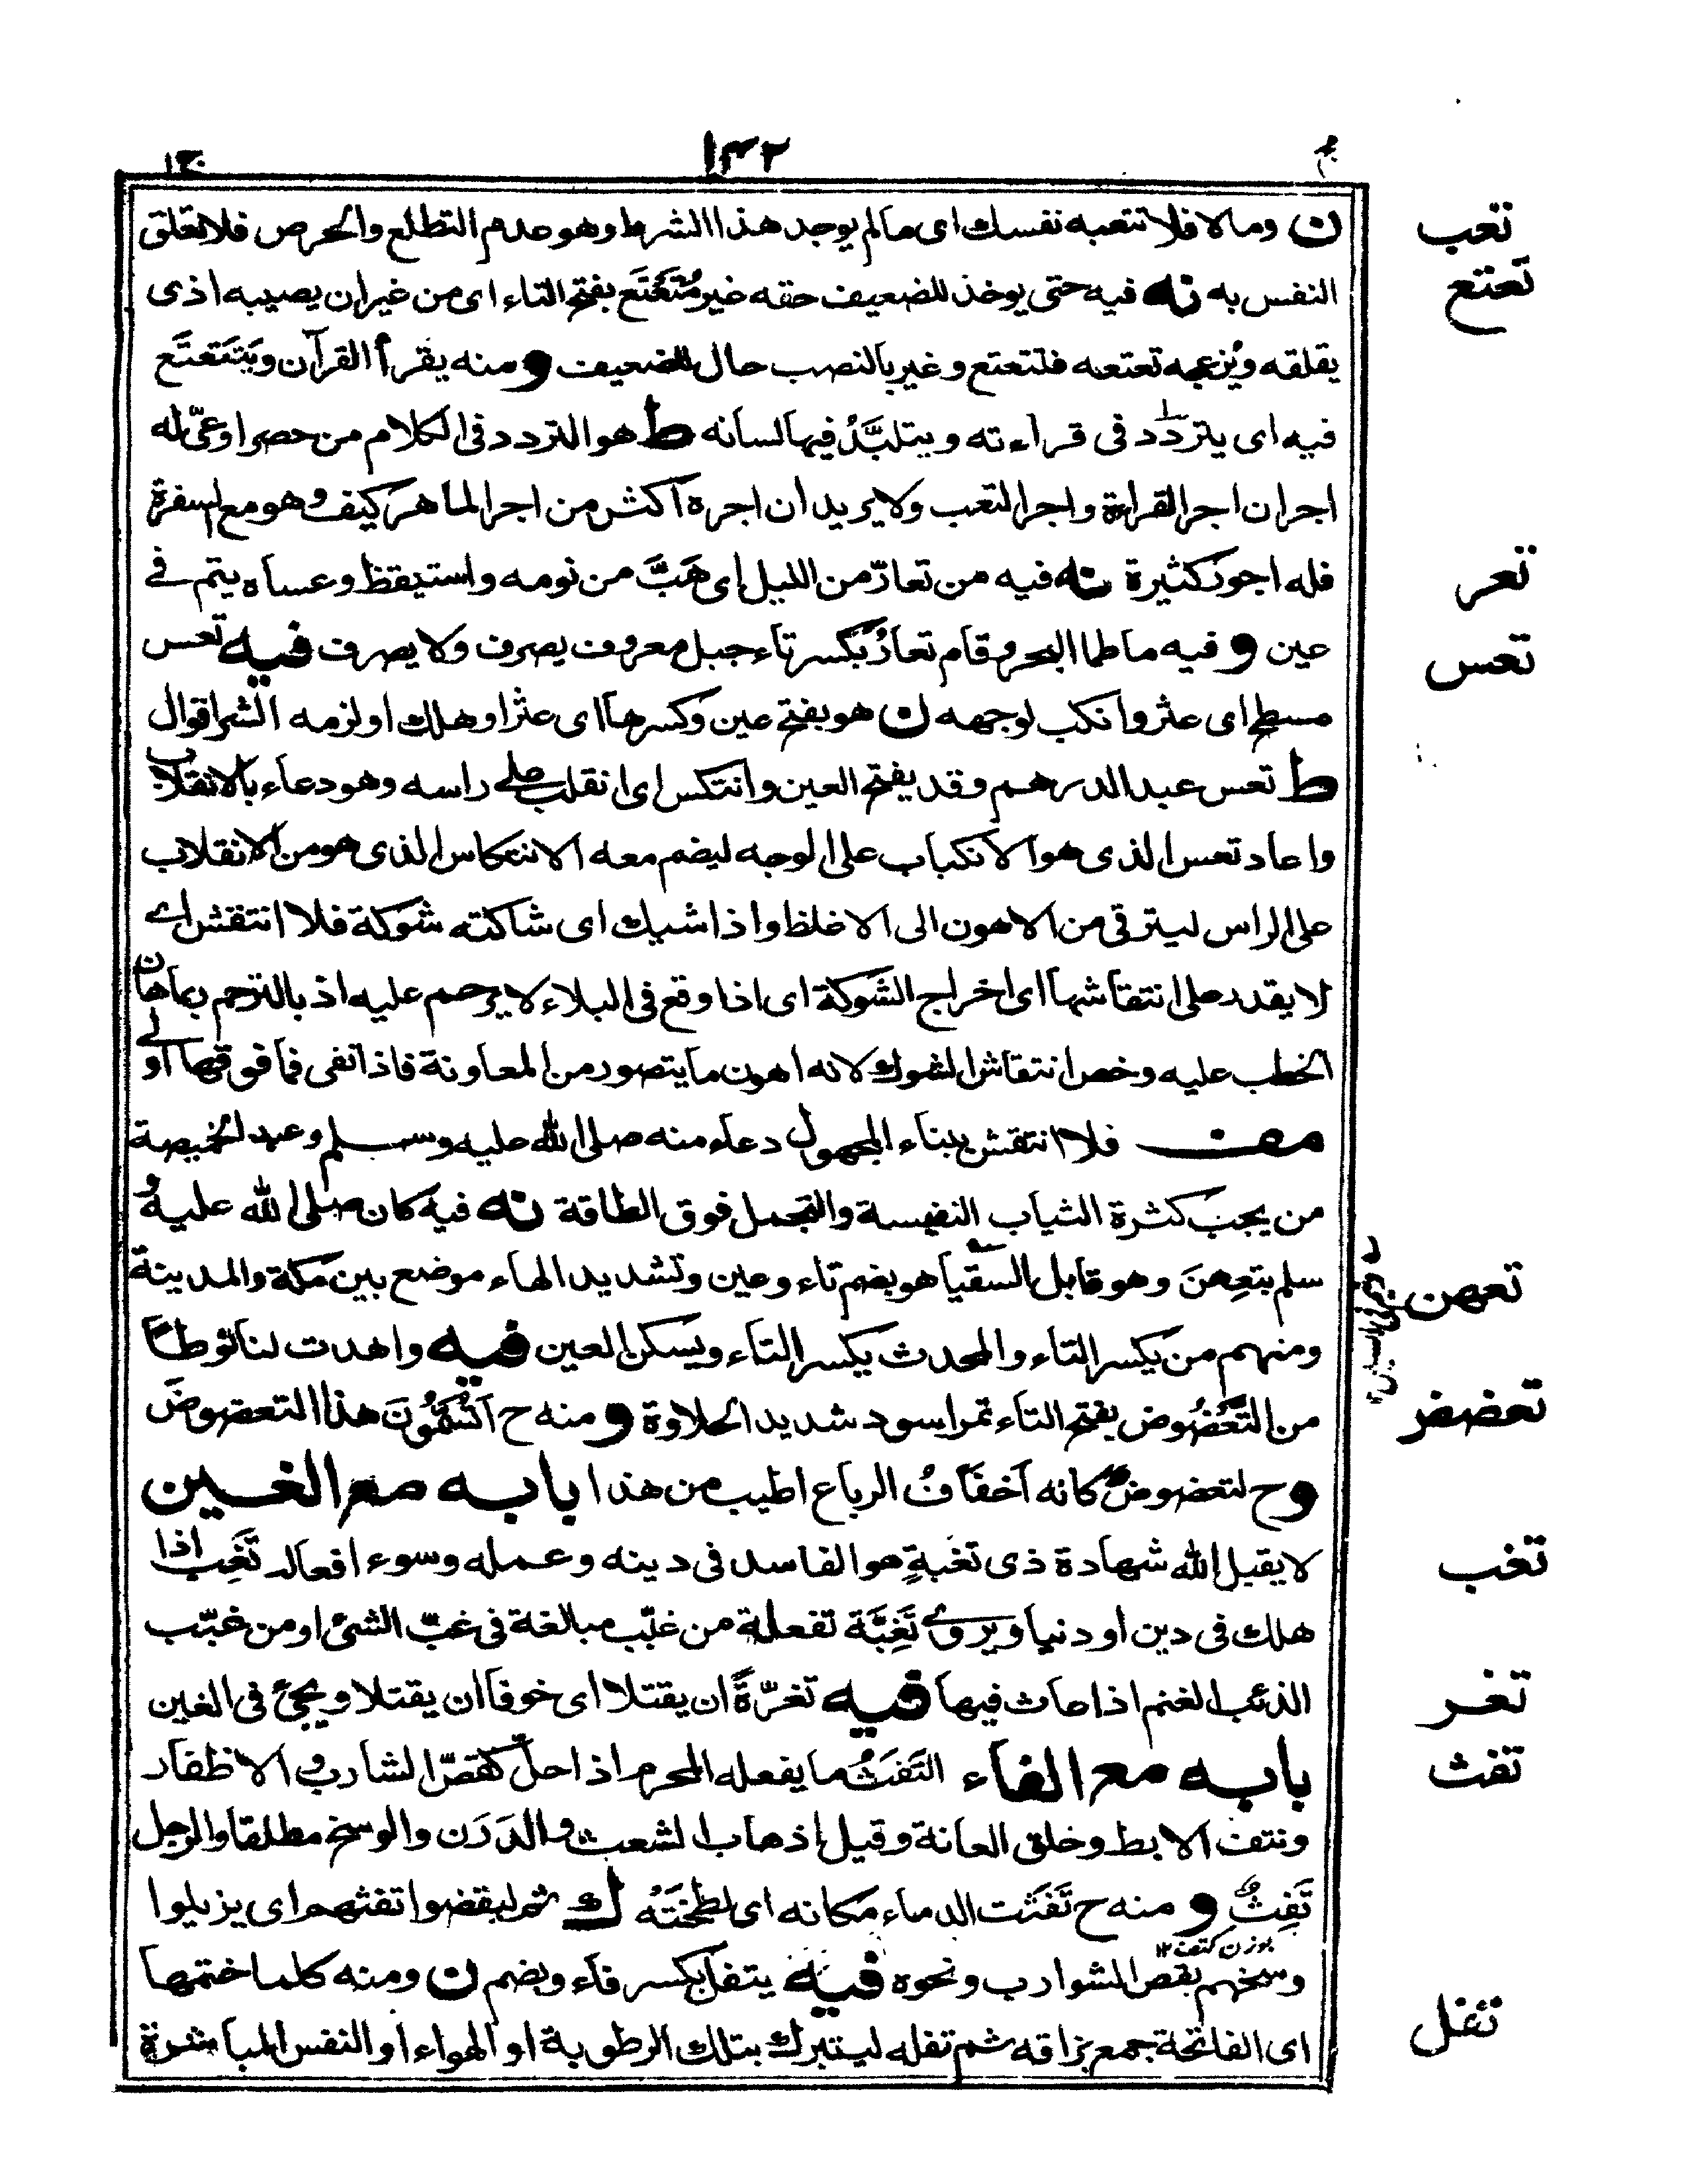 ١٣٢
ن وما لا فلا تتعبه نفسك اى مالم يوجد هذا الشرط وهو عدم التطلع والحرص فلا تعلق
تعب
النفس به نه فيه حتى يوخذ للضعيف حقه غير مُتَعْتَع بفتح التاء اى من غير ان يصيبه اذى
تعتع
يقلقه ويزعجه تعتعه فتتعتع وغير بالنصب حال للضعيف و منه يقرأ القرآن ويَتَتَعتَع
فيه اى يتردد فى قراءته ويتلبَّدُ فيها لسانه ط هو التردد فى الكلام من حصر او عىّ له
اجران اجر القراءة واجر التعب ولا يريد ان اجره اكثر من اجر الماهر كيف وهو مع السفرة
فله اجور كثيرة نه فيه من تعارّ من الليل اى هَبَّ من نومه واستيقظ وعساه يتم فے
تعر
عين و فيه ما طما البحر وقام تعارُ بكسر تاء جبل معروف يصرف ولا يصرف فيه تعس
تعس
مسطح اى عثر وانكب لوجهه ن هو بفتح عين وكسرها اى عثر او هلك او لزمه الشر اقوال
ط تعس عبد الدرهم وقد يفتح العين وانتكس اى انقلب علے راسه وهو دعاء بالانقلاب
واعاد تعس الذى هو الانكباب على الوجه ليضم معه الانتكاس الذى هو من الانقلاب
على الراس ليترقى من الاهون الى الاغلظ واذا شيك اى شاكته شوكة فلا انتقش اے
لا يقدر على انتقاشها اى اخراج الشوكة اى اذا وقع فى البلاء لا يرحم عليه اذ بالترحم ربما هان
الخطب عليه وخص انتقاش الشوك لانه اهون ما يتصور من المعاونة فاذا نفى فما فوقها اولے
مف فلا انتقش ببناء المجهول دعاء منه صلى الله عليه وسلم وعبد الخميصة
من يحب كثرة الثياب النفيسة والتجمل فوق الطاقة نه فيه كان صلى الله عليه و
سلم بتعِهنَ وهو قابل السقيا هو بضم تاء وعين وتشديد الهاء موضع بين مكة والمدينة
تعهن
ومنهم من يكسر التاء والمحدث يكسر التاء ويسكن العين فيه واهدت لنا نوطا
من التَعْضُوض بفتح التاء تمر اسود شديد الحلاوة و منه ح اتُسَمُّونَ هذا التعضوضَ
تعضض
وح لتعضوضٌ كانه اخفافُ الرباع اطيب من هذا بابه مع الغين
لا يقبل الله شهادة ذى تغبةٍ هو الفاسد فى دينه وعمله وسوء افعاله تَغِبَ اذا
تغب
هلك فى دين او دنيا ويروے تَغِبَّة تفعلة من غبّب مبالغة فى غبّ الشئ او من غبّب
الذئب الغنم اذا عاث فيها فيه تغرّةً ان يقتلا اى خوفا ان يقتلا ويجئ فى الغين
تغر
بابه مع الفاء التَفَثُ ما يفعله المحرم اذا حلّ كقصّ الشارب و الاظفار
تفث
ونتف الابط وحلق العانة وقيل اذهاب الشعث والدَرَن والوسخ مطلقا والرجل
تَفِثٌ و منه ح تَفَثت الدماء مكانه اى لطختَهُ ك ثم ليقضوا تفثهم اى يزيلوا
بوزن كتف ١٢
وسخهم بقص الشوارب ونحوه فيه يتفل بكسر فاء وبضم ن ومنه كلما ختمها
اى الفاتحة جمع بزاقه ثم تفله ليتبرك بتلك الرطوبة او الهواء او النفس المباشرة
تفل